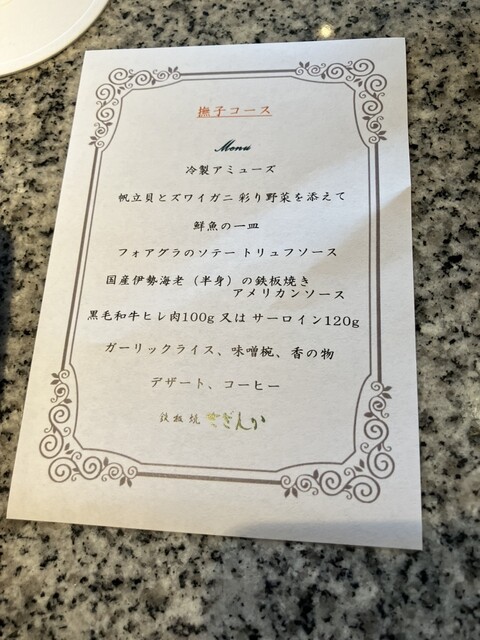 撫子コース
Menu
冷製アミューズ
帆立貝とズワイガニ 彩り野菜を添えて
鮮魚の一皿
フォアグラのソテー トリュフソース
国産伊勢海老（半身）の鉄板焼き
アメリカンソース
黒毛和牛ヒレ肉100g 又は サーロイン120g
ガーリックライス、味噌椀、香の物
デザート、コーヒー
鉄板焼 さざんか